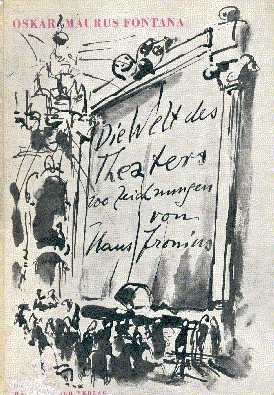 OSKAR MAURUS FONTANA
Die Welt des
Theaters
100 Zeichnungen
von
Hans Fronius
VERLAG